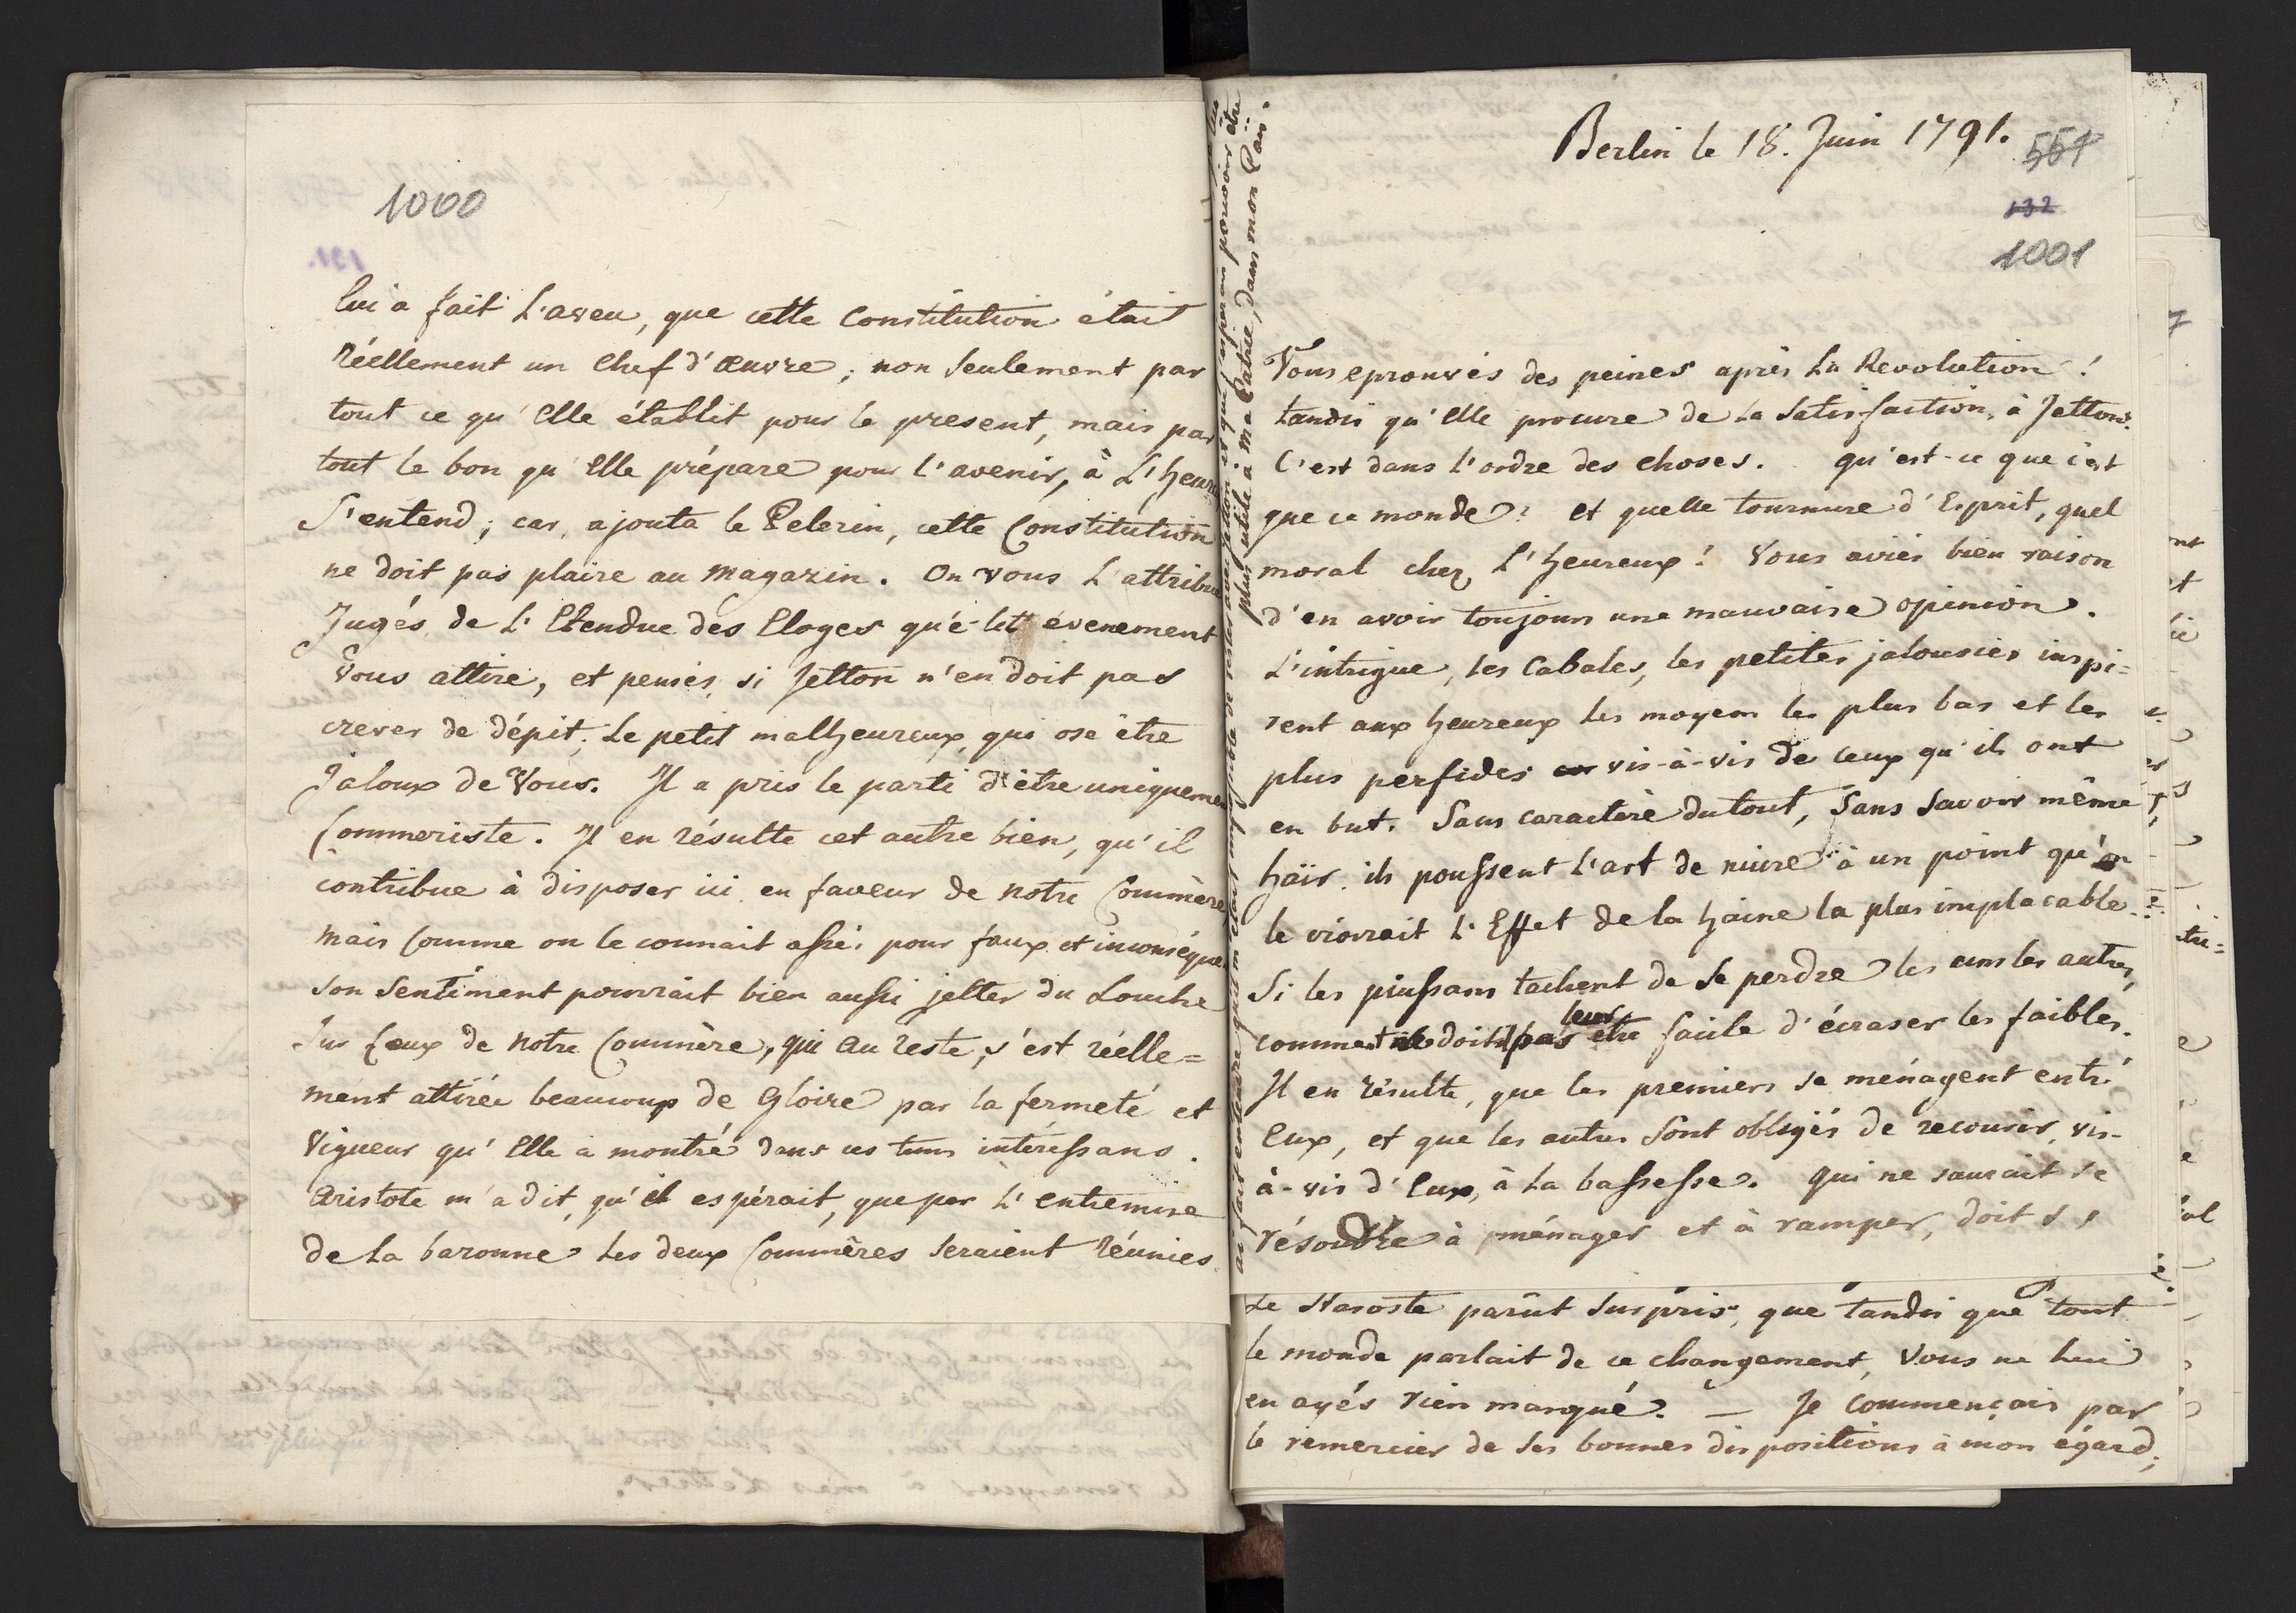 1000
131.
lui a fait l'aveu, que cette Constitution était
réellement un Chef d'œuvre; non seulement par
tout ce qu'Elle établit pour le present, mais par
tout le bon qu'Elle prépare pour l'avenir, à L'heure
S'entend; car, ajouta le Pelerin, cette Constitution
ne doit pas plaire au Magazin. On vous L'attribue
Jugés de L'Etendue des Eloges que cet évenement
Vous attire, et pensés, si Jetton n'en doit pas
crever de dépit. Le petit malheureux, qui ose être
Jaloux de Vous. Il a pris le parti d'être uniquement
Commeriste. Il en résulte cet autre bien, qu'il
contribue à disposer ici en faveur de notre Commère
Mais comme on le connait assés pour faux et inconséquent
son Sentiment pourrait bien aussi jetter du Louche
Sur Ceux de notre Commère, qui au reste, s'est réelle=
ment attirée beaucoup de Gloire par la fermeté et
Vigueur qu'Elle a montré dans ces tems intéressans.
Aristote m'a dit, qu'il espérait, que par L'entremise
de la baronne les deux Commères seraient réunies.
plus utile à ma Patrie, dans mon Païs.
Berlin le 18. Juin 1791.
551
132
1001
Vous eprouvés des peines après La Revolution!
tandis qu'Elle procure de la Satisfaction, à Jetton.
C'est dans l'ordre des choses. qu'est-ce que c'est
que ce monde? et quelle tournure d'Esprit, quel
moral chez L'heureux! Vous aviés bien raison
d'en avoir toujours une mauvaise opinion.
L'intrigue, les Cabales, les petites jalousies inspi=
rent aux heureux les moyens les plus bas et les
plus perfides vis-à-vis de ceux qu'ils ont
en but. Sans caractère du tout, Sans Savoir même
haïr, ils poussent l'art de nuire à un point qu'on
le croirait L'Effet de la haine la plus implacable.
Si les puissans tachent de Se perdre les uns les autres,
comment ne doit il pas leur être facile d'écraser les faibles.
Il en résulte, que les premiers se ménagent entre
Eux, et que les autres Sont obligés de recourir, vis-
à-vis d'Eux, à la bassesse. Qui ne saurait se
résoudre à ménager et à ramper, doit s
Le Staroste parût Surpris, que tandis que tout
le monde parlait de ce changement, Vous ne lui
en ayés rien marqué. — Je Commençais par
le remercier de Ses bonnes dispositions à mon égard,